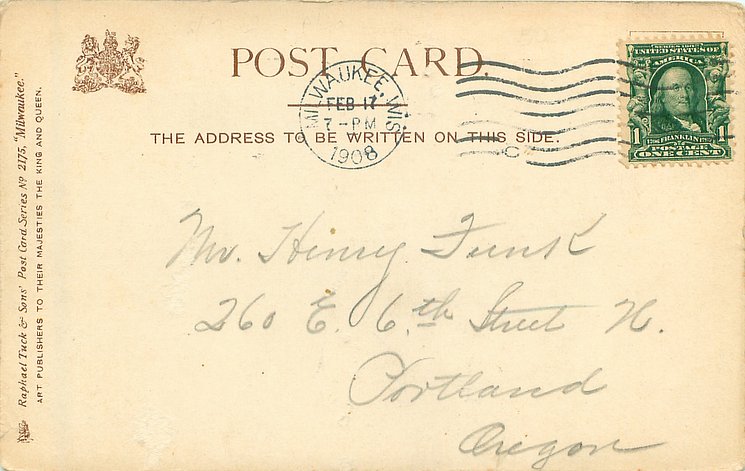 POST CARD.
THE ADDRESS TO BE WRITTEN ON THIS SIDE.
Raphael Tuck & Sons' Post Card Series Nº 2175, "Milwaukee."
ART PUBLISHERS TO THEIR MAJESTIES THE KING AND QUEEN.
MILWAUKEE, WIS.
FEB 17
7-PM
1908
C
SERIES 1902
UNITED STATES OF
AMERICA
1 FRANKLIN 1
POSTAGE
ONE CENT
Mr. Henry Funk
260 E. 6th Street N.
Portland
Oregon